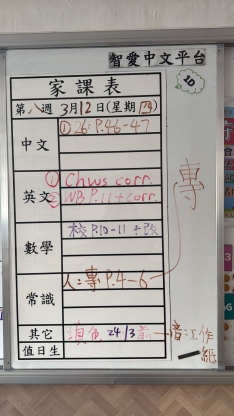 智愛中文平台
10
家課表
第八週 3月12日(星期四)
中文
① 26: P.46-47
英文
① Chws corr.
② NB P.11 + corr.
數學
校 P.10-11 + 改
專
常識
人:專 P.4-6
其它
填色 24/3前 音:工作紙
值日生